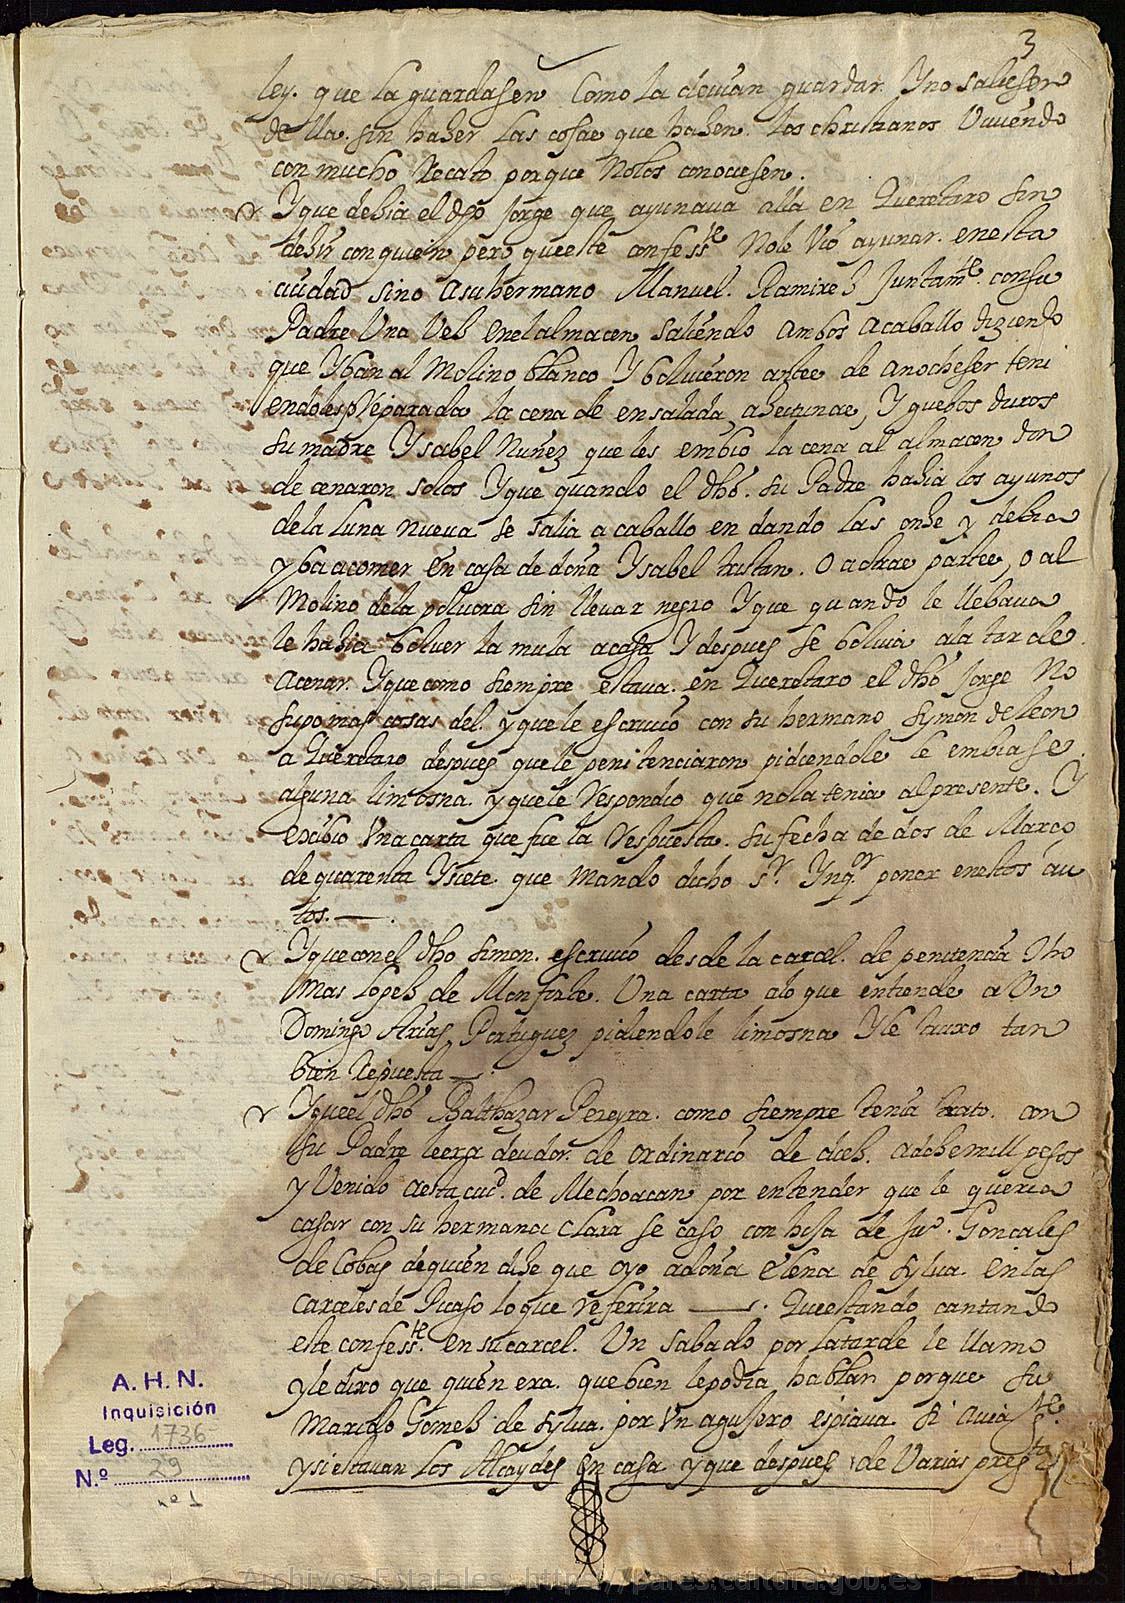 3
ley. que la guardasen como la devian guardar. Y no saliesen
de lla. sin hazer las cosas que hazen. los christianos viviendo
con mucho Recato porque nolos conociesen.
Y que dezia el dho Jorge que ayunava alla en Queretaro sin
dezir con quien pero que este confess.te Nole vio ayunar. en esta
ciudad sino a su hermano Manuel. Ramirez Juntam.te con su
Padre Una Vez enel almacen saliendo ambos a caballo diziendo
que Yban al Molino blanco Y bolvieron antes de anochecer teni
endoles Reparada la cena de ensalada, azeitunas, Y guebos duros
su madre Ysabel Nuñez que les embio la cena al almacen don
de cenaron solos Y que quando el dho. su Padre hazia los ayunos
dela luna nueva se salia a caballo en dando las onze y dezia
yba a comer en casa de doña Ysabel tristan. O a otras partes, o al
Molino dela polvora sin llevar negro Y que quando le llebava
le hazia bolver la mula a casa Y despues se bolvia ala tarde
a cenar. Y que como siempre estava. en Queretaro el dho Jorge No
supo mas cosas del. y que le escrivio con su hermano Symon de leon
a Queretaro despues que le penitenciaron pidiendole le embiase
alguna limosna. y que le Respondio que nola tenia al presente. Y
exibio Una carta que fue la Respuesta. su fecha de dos de Março
de quarenta Y siete. que mando dicho s.r Ynq.or poner enestos au
tos.
Y que con el dho simon. escrivio desde la carcel. de penitencia Tho
mas lopez de Monforte. Una carta alo que entiende a Un
Domingo Arias Portuguez pidiendole limosna Y le truxo tan
bien Repuesta
Y que el dho Balthazar Pereyra. como siempre tenia trato. con
su Padre le era deudor. de ordinario de diez. a doze mill pesos
y Venido a esta ciu.d de Mechoacan por entender que le queria
casar con su hermana Clara se caso con hija de Ju.o Gonçales
de Cobas de quien dize que oyo a doña Elena de sylva. en las
carceles de Picaso lo que referira . Que estando cantando
este confess.te en su carcel. Un sabado por la tarde le llamo
y le dixo que quien era. que bien le podia hablar porque su
Marido Gomez de sylva. por Un agujero espiava si avia g.te
y si estavan los Alcaydes en casa y que despues de Varias preg.tas
A. H. N.
Inquisición
Leg. 1736
N.º 29
nº 1
Archivos Estatales, http://pares.cultura.gob.es